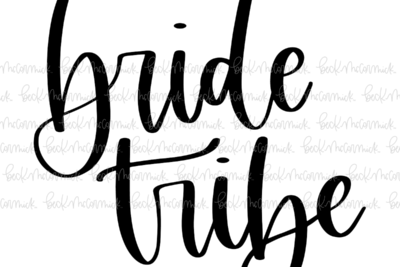 bride
tribe